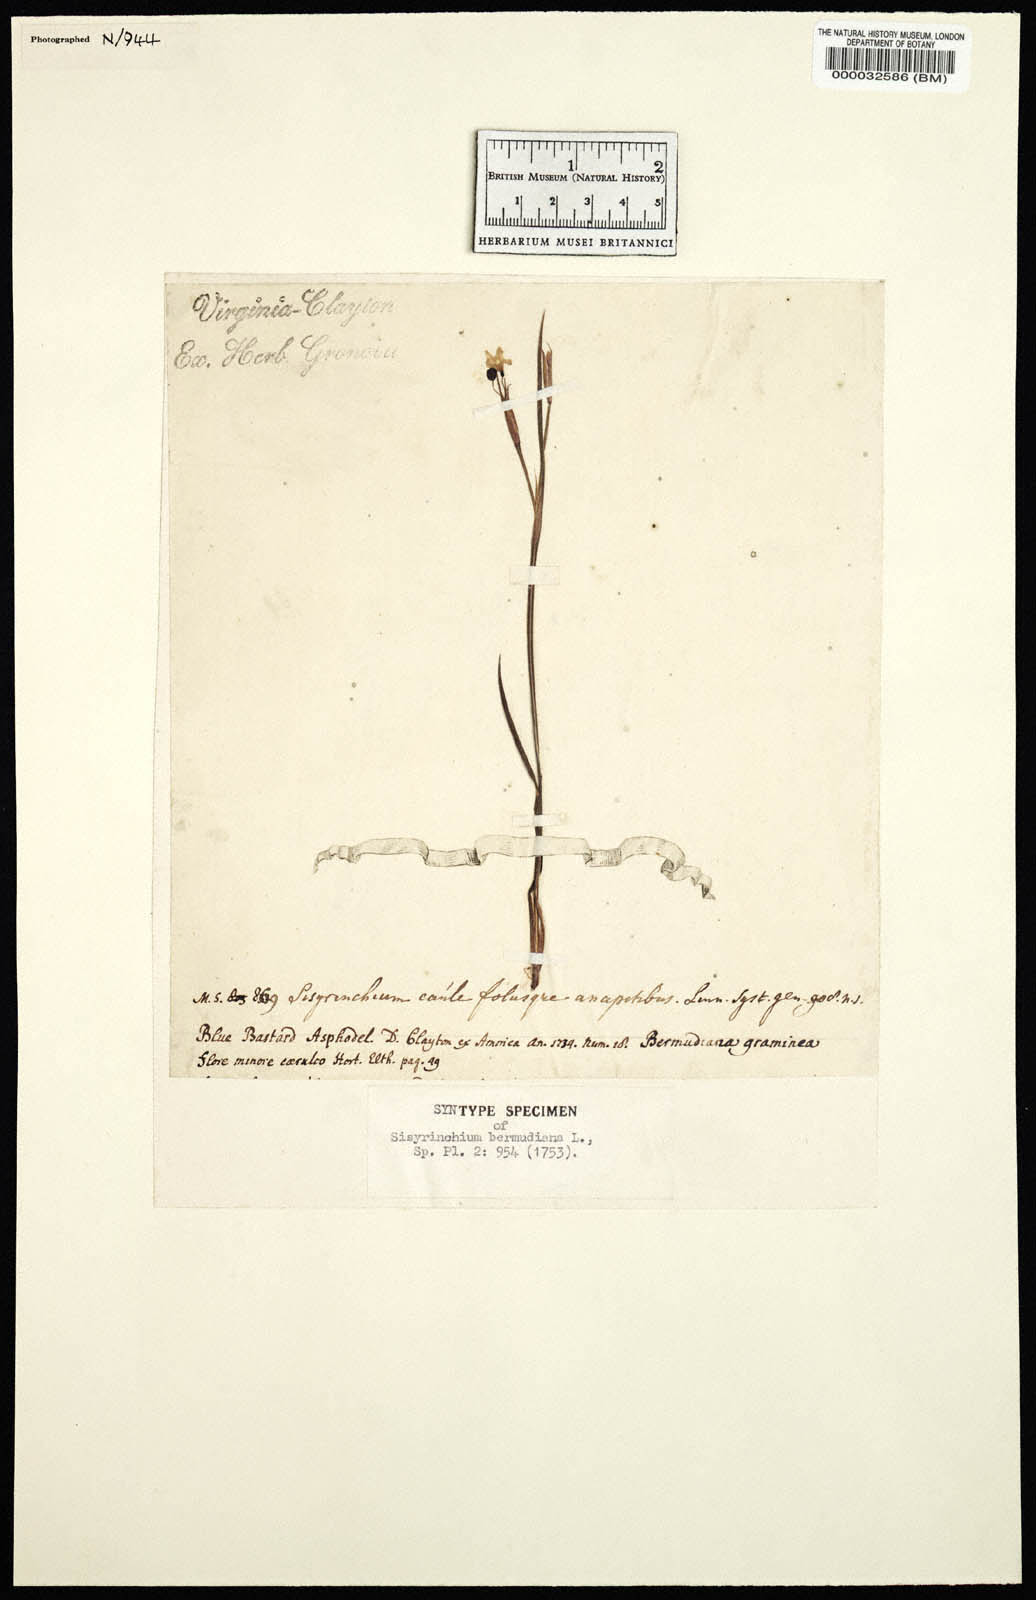 Photographed N/944
THE NATURAL HISTORY MUSEUM, LONDON
DEPARTMENT OF BOTANY
000032586 (BM)
1 2
BRITISH MUSEUM (NATURAL HISTORY)
1 2 3 4 5
HERBARIUM MUSEI BRITANNICI
Virginia-Clayton
Ex. Herb. Gronovii
M. S. 869 Sisyrinchium caule foliisque anapitibus. Linn. Syst. gen. 908. n.1.
Blue Bastard Asphodel. D. Clayton ex America an. 1734. Num. 18. Bermudiana graminea
flore minore cæruleo Hort. Elth. pag. 49
SYNTYPE SPECIMEN
of
Sisyrinchium bermudiana L.,
Sp. Pl. 2: 954 (1753).